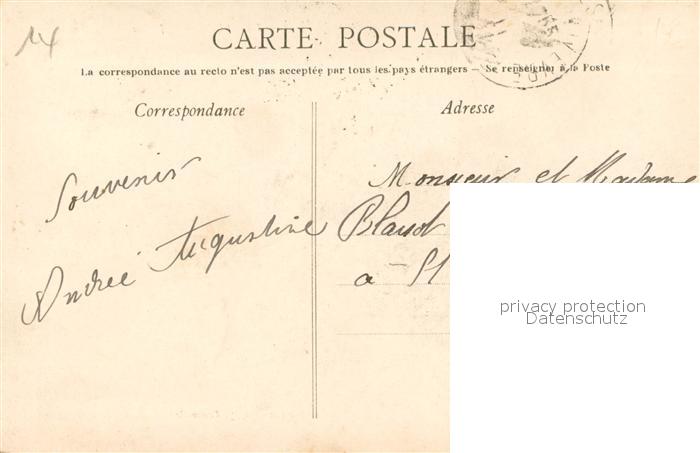 14
CARTE POSTALE
La correspondance au recto n'est pas acceptée par tous les pays étrangers — Se renseigner à la Poste
Correspondance
Adresse
Souvenir
Andrée Augustine
Monsieur et Madame
à St
privacy protection
Datenschutz